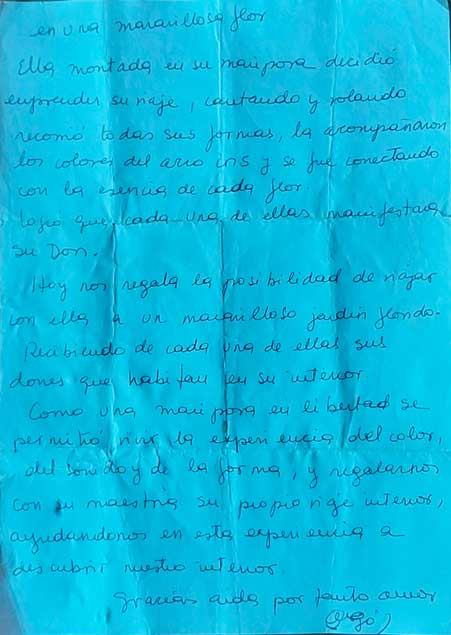 en una maravillosa flor
Ella montada en su mariposa decidió
emprender su viaje, cantando y volando
recorrió todas sus formas, la acompañaron
los colores del arco iris y se fue conectando
con la esencia de cada flor.
logro que cada una de ellas manifestara
su Don.
Hoy nos regala la posibilidad de viajar
con ella a un maravilloso jardín florido.
Recibiendo de cada una de ellas sus
dones que habitan en su interior.
Como una mariposa en libertad se
permitió vivir la experiencia del color,
del sonido y de la forma, y regalarnos
con su maestria su propio viaje interior,
ayudandonos en esta experiencia a
descubrir nuestro interior.
Gracias por tanto amor